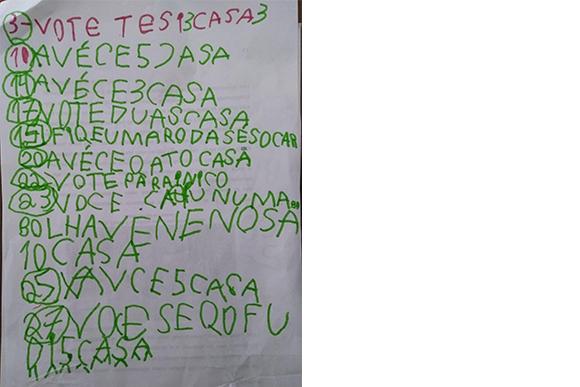 3-VOTE TES13CASA3
10AVÉCE5JASA
14AVÉCE3CASA
17VOTEDUASCASA
15FIQEUMARODASÉSOCAR
20AVÉCEOATOCASA
22-VOTEPARAINICO
23VOCE CAIU NUMA
BOLHAVENENOSA
10CASA
25 AVCE5CASA
27VOCE SE
15CASA